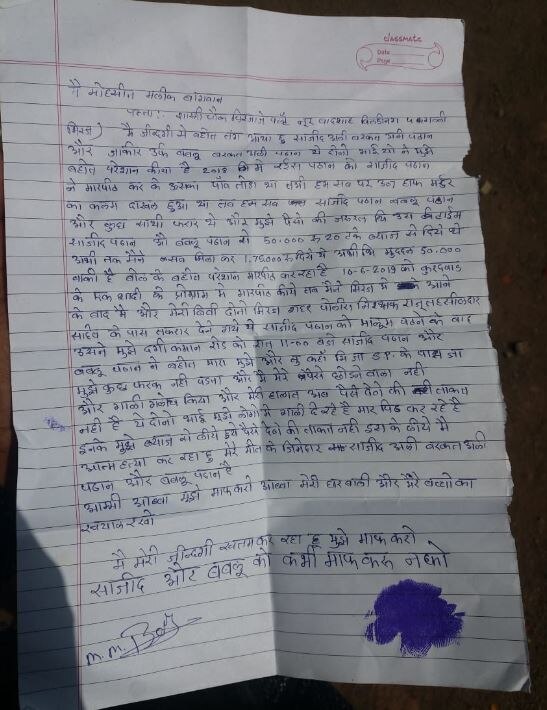 classmate
Date
Page
मै मोहसीन मलीक बागवान
पत्ता:- शास्त्री चौक नूर बादशाह
मिरज) मै जींदगी से बहोत तंग आया हु साजीद अली बरकत अली पठान
और जाकीर उर्फ बबलू बरकत अली पठान ये दोनो भाईयो ने मुझे
बहोत परेशान कीया है 2018 मे रईसा पठान को साजीद पठान
ने मारपीठ कर के उसका पाँव तोडा था तभी हम सब पर उन हाफ मर्डर
का कलम दाखल हुआ था तब हम सब साजीद पठान बबलू पठान
और कुछ साथी फरार थे और मुझे पैसो की जरुरत थि उस टाईम
साजीद पठान औ बबलू पठान से 50,000 रु 20 टके ब्याज से दिये थे
अभी तक मैने सब मिला कर 1,75000 रु दिये है अभी भि मुद्दल 50,000
बाकी है बोल के बहोत परेशान मारपीठ कर रहा है 10-6-2019 को कुरुंदवाड
के एक शादी के प्रोग्राम मे मारपीठ कीये तब मैने मिरज मे आने
के बाद मै और मेरी बिवी दोनो मिरज शहर पोलीस निरिक्षक राजू तहसीलदार
साहेब के पास तकरार देने गये थे साजीद पठान को मालुम पडने के बाद
उसने मुझे कमान रोड को रात 11-00 बजे साजीद पठान और
बबलू पठान ने बहोत मारा मुझे और तु कहाँ भि जा S.P. के पास जा
मुझे कुछ फरक नही पडता और मै मेरे पैसे छोडने वाला नही
और गाली गलोच किया और मेरी हालात अब पैसे देने की ताकात
नही है ये दोनो भाई मुझे गाली दे रहे है मार पिठ कर रहे है
इनके मुझे ब्याज से लीये हुये पैसे देने की ताकात नही इस के लीये मै
आत्महत्या कर रहा हु मेरे मौत के जिमेदार साजीद अली बरकत अली
पठान और बबलू पठान है
आम्मी आब्बा मुझे माफ करो आब्बा मेरी घरवाली और मेरे बच्चो का
खयाल रखो
मै मेरी जीन्दिगी खतम कर रहा हु मुझे माफ करो
साजीद और बबलू को कभी माफ करु नको
M.M.